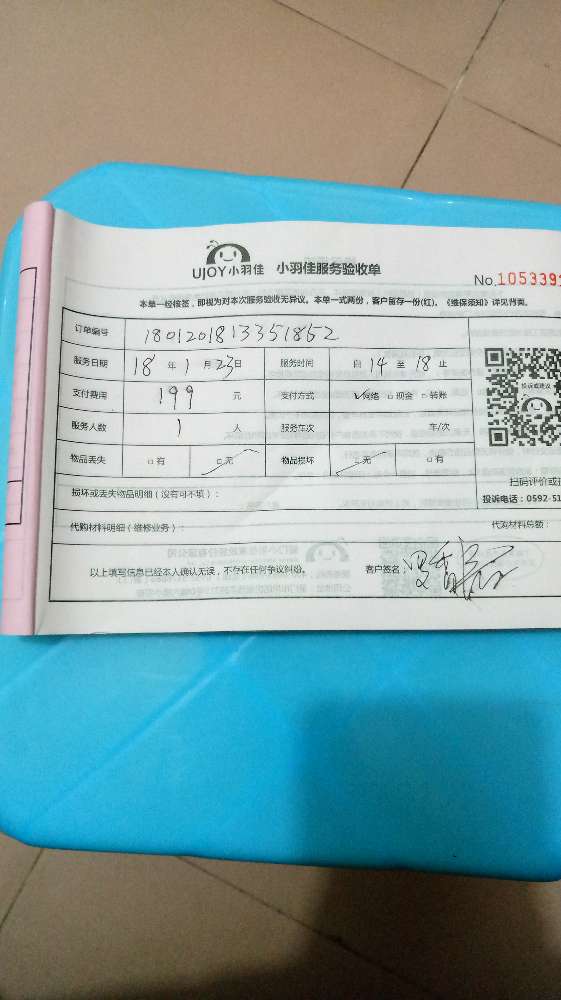 UJOY小羽佳 小羽佳服务验收单
No.1053391
本单一经核签，即视为对本次服务验收无异议。本单一式两份，客户留存一份(红)。《维保须知》详见背面。
订单编号 1801201813351852
服务日期 18年1月23日 服务时间 自14至18止
投诉或建议
支付费用 199元 支付方式 ✓网络 □现金 □转账
服务人数 1人 服务车次 车/次
物品丢失 □有 □无 物品损坏 □无 □有
扫码评价或投
损坏或丢失物品明细（没有可不填）：
投诉电话：0592-51
代购材料明细（维修业务）：
代购材料总额：
以上填写信息已经本人确认无误，不存在任何争议纠纷。 客户签名：